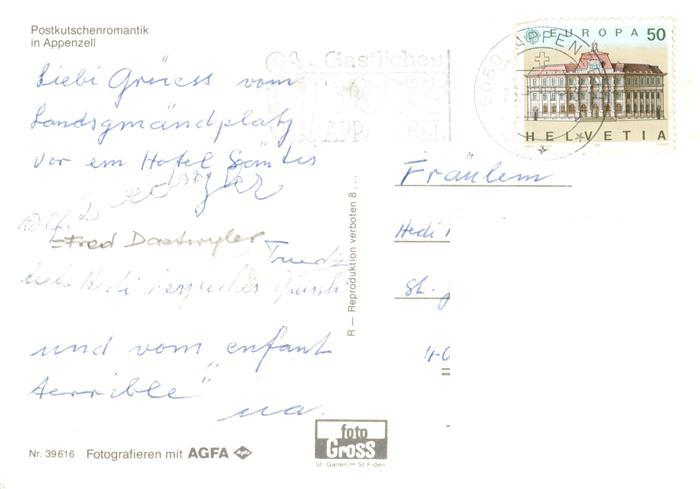 Postkutschenromantik
in Appenzell
Gastliches
APPENZELL
9050 APPENZELL
EUROPA 50
HELVETIA
Liebi Grüess vom
Landsgmändplatz
vor em Hotel Säntis
Fred Daetwyler
Trudi
und vom enfant
terrible"
Fräulein
Hedi
St.
R — Reproduktion verboten 8 ...
foto
Gross
St. Gallen — St. Fiden
Nr. 39616 Fotografieren mit AGFA